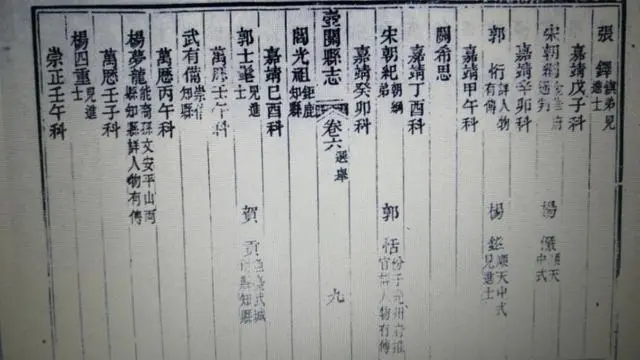 張鐸 弟見進士
嘉靖戊子科
宋朝綱 府通判 楊 順天中式
嘉靖辛卯科
郭桁 詳人物有傳 楊鑑 順天中式見進士
嘉靖甲午科
關希思
嘉靖丁酉科
宋朝紀 朝綱弟 郭恬 州府推官詳人物有傳
嘉靖癸卯科
壺關縣志 卷六 選舉 九
閻光祖 鉅鹿知縣
嘉靖己酉科
郭士 見進士 賀貢 武城知縣
萬曆壬午科
武有備 崇信知縣
萬曆丙午科
楊夢龍 能裔孫文安平山兩縣知縣詳人物有傳
萬曆壬子科
楊四重 見進士
崇正壬午科